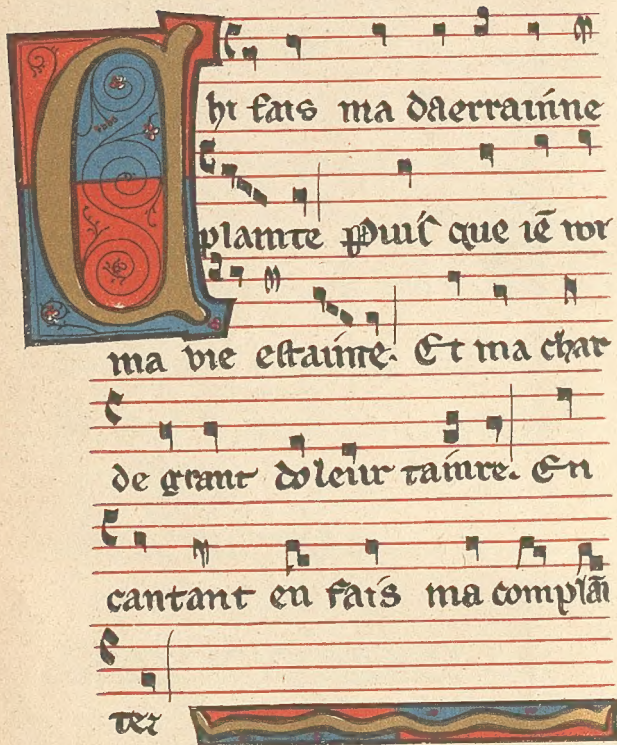 Chi fais ma daerrainne
plainte Puis que iē voi
ma vie estainte. Et ma char
de grant doleur tainte. En
cantant en fais ma complaī
te;